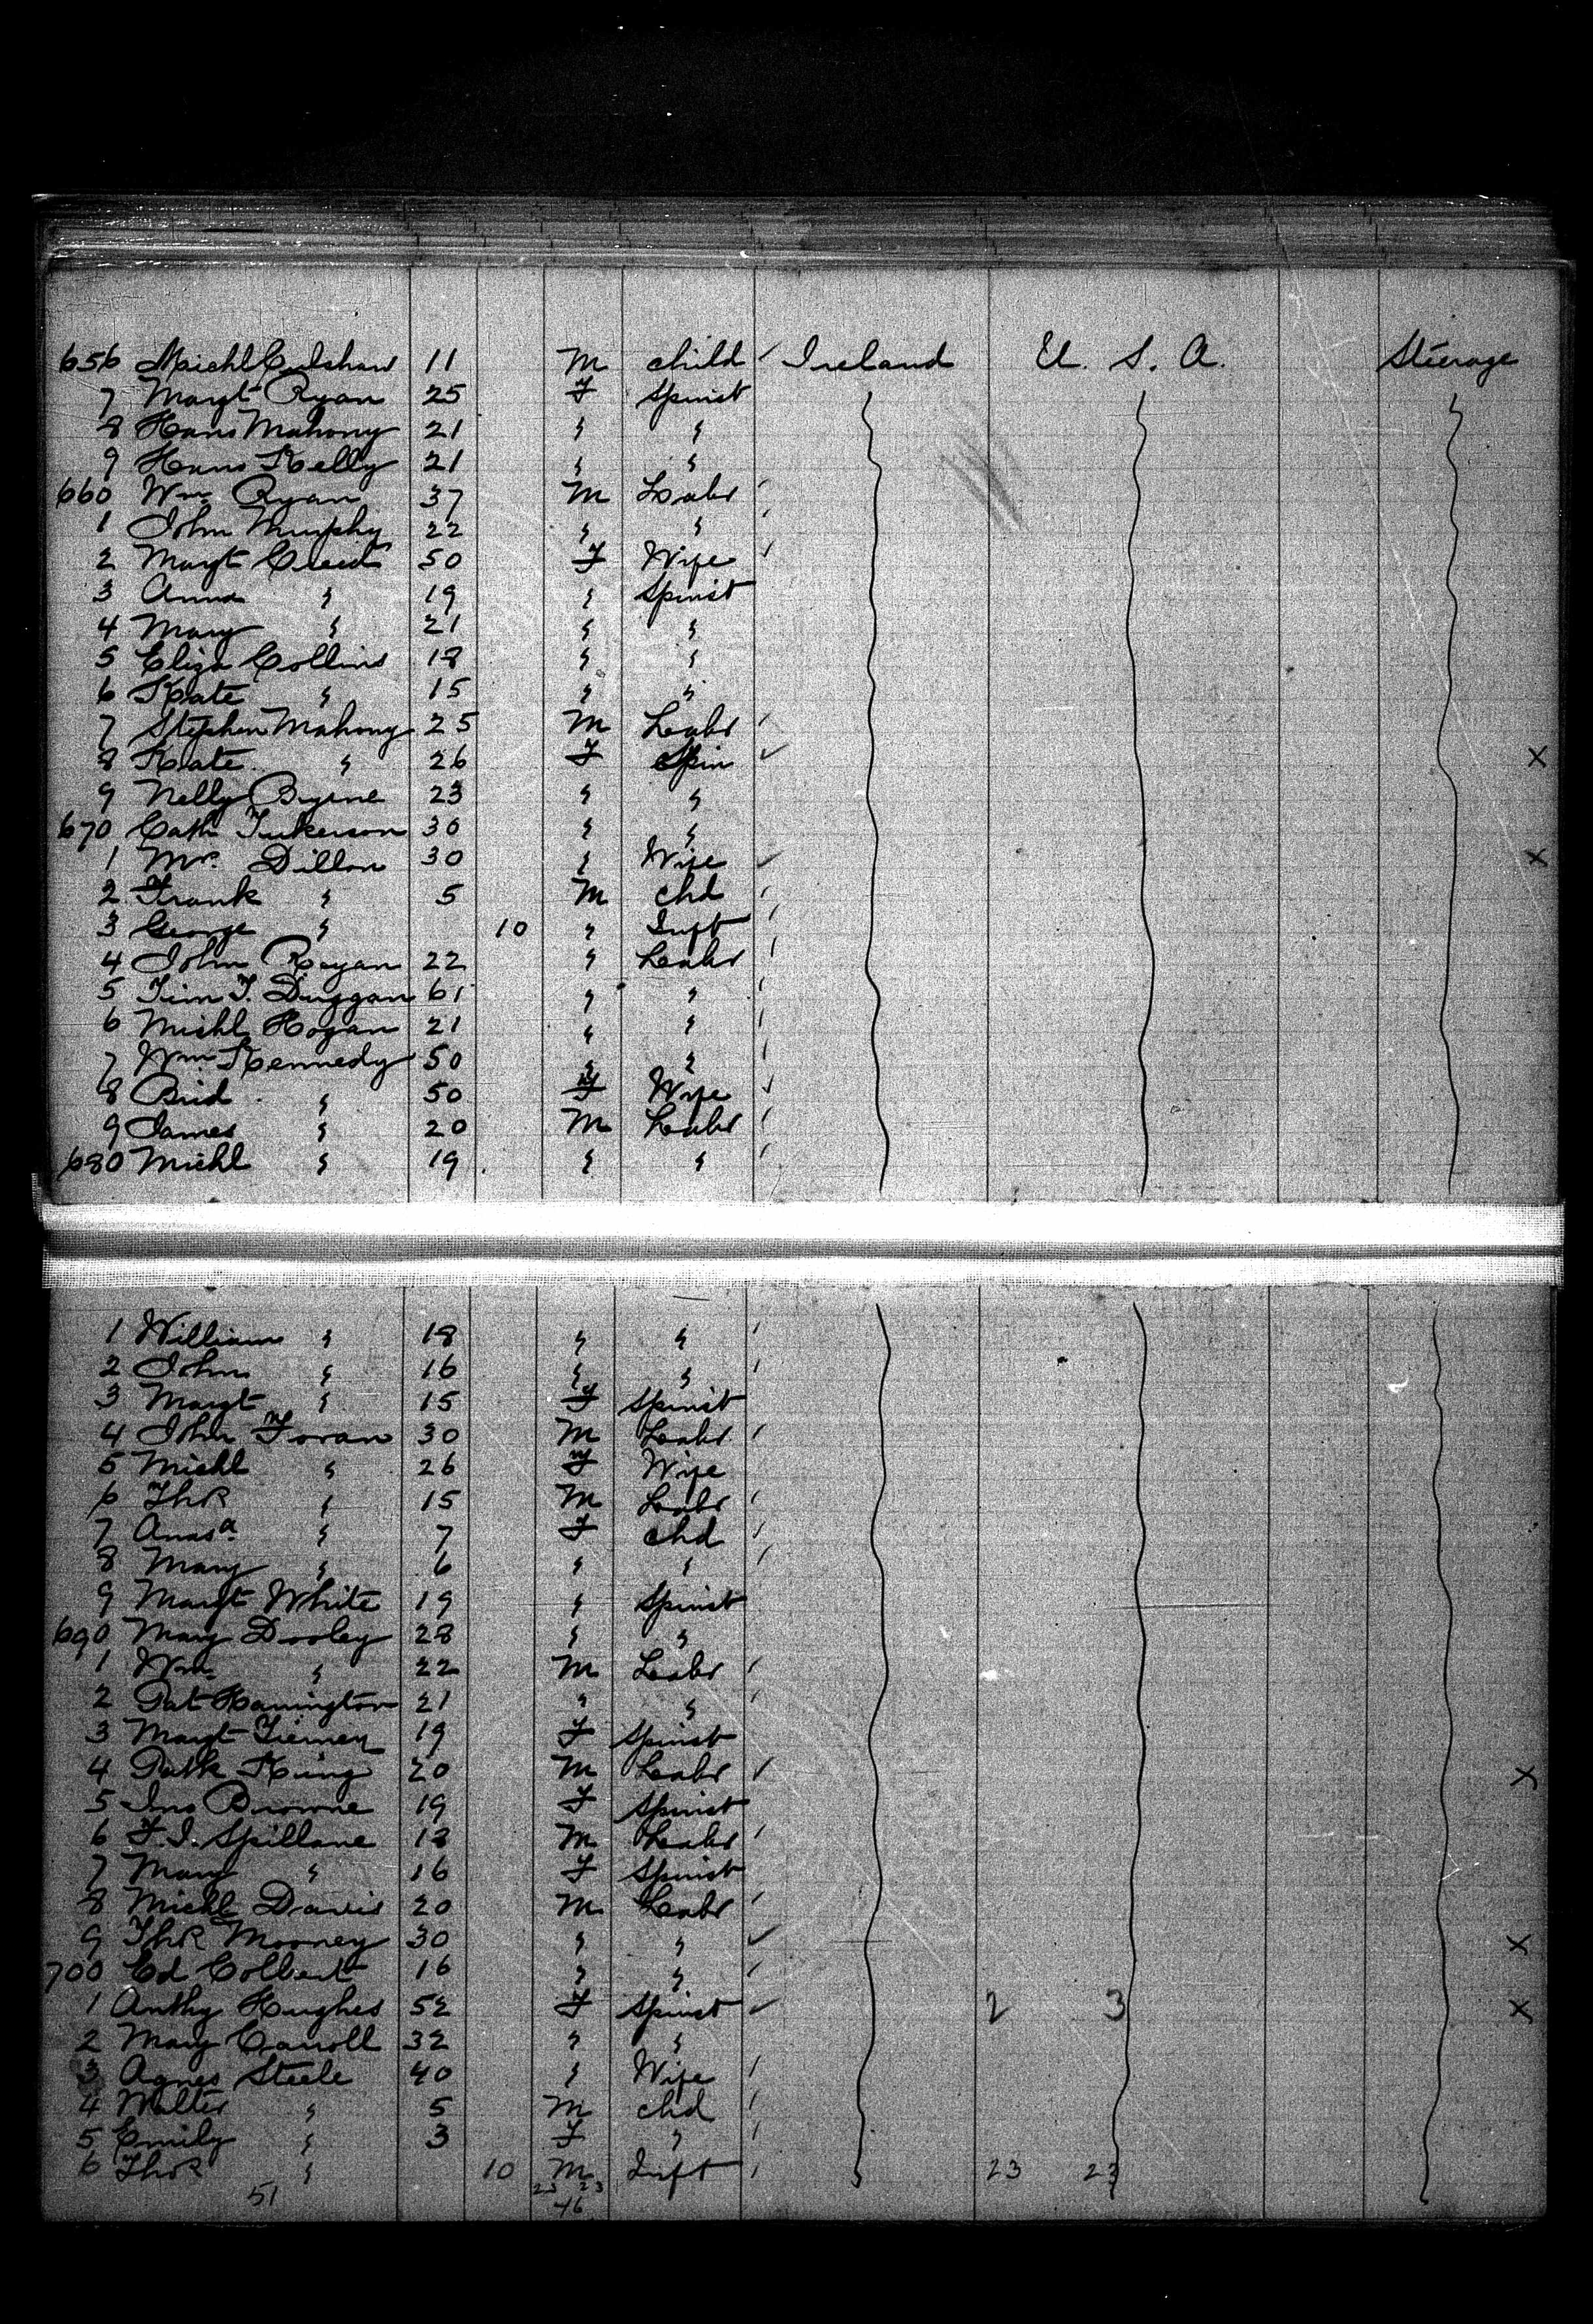 656 Michl Culshaw 11 M child ✓ Ireland U. S. A. Steerage
7 Margt Ryan 25 F Spinst
8 Hans Mahony 21 " "
9 Hans Kelly 21 " "
660 Wm Ryan 37 M Labr /
1 John Murphy 22 " " /
2 Margt Creed 50 F Wife /
3 Anna " 19 " Spinst
4 Mary " 21 " "
5 Eliza Collins 18 " "
6 Kate " 15 " "
7 Stephen Mahony 25 M Labr /
8 Kate " 26 F Spin ✓ x
9 Nelly Byrne 23 " "
670 Cath " "
1 Mrs Dillon 30 " Wife ✓ x
2 Frank " 5 M chd /
3 George " 10 " Inft /
4 John Ryan 22 " Labr /
5 Tim J. Duggan 61 " " /
6 Michl Hogan 21 " " /
7 Wm Kennedy 50 " " /
8 Brid " 50 F Wife ✓
9 James " 20 M Labr /
680 Michl " 19 " " /
1 William " 18 " " /
2 John " 16 " " /
3 Margt " 15 F Spinst
4 John Foran 30 M Labr /
5 Michl " 26 F Wife
6 Thos " 15 M Labr /
7 Anasa " 7 F chd /
8 Mary " 6 " " /
9 Margt White 19 " Spinst
690 Mary Dooley 28 " "
1 Wm " 22 M Labr /
2 Pat Hanington 21 " " /
3 Margt Tierney 19 F Spinst
4 Patk King 20 M Labr ✓ x
5 Jno Browne 19 F Spinst
6 F. J. Spillane 18 M Labr /
7 Mary " 16 F Spinst
8 Michl Davis 20 M Labr /
9 Thos Mooney 30 " " ✓ x
700 Ed Colbert 16 " " /
1 Anthy Hughes 52 F Spinst ✓ 2 3 x
2 Mary Carroll 32 " "
3 Agnes Steele 40 " Wife /
4 Walter " 5 M chd /
5 Emily " 3 F " /
6 Thos " 10 M Inft / 23 23
51 23 23
46